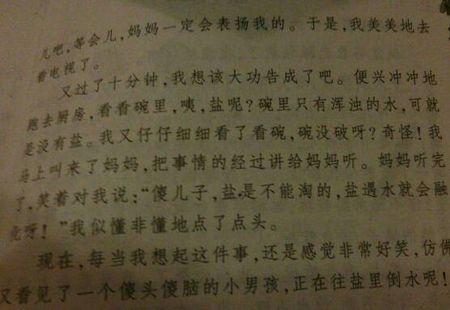 儿吧，等会儿，妈妈一定会表扬我的。于是，我美美地去
看电视了。
又过了十分钟，我想该大功告成了吧。便兴冲冲地
跑去厨房，看看碗里，咦，盐呢？碗里只有浑浊的水，可就
是没有盐。我又仔仔细细看了看碗，碗没破呀？奇怪！我
马上叫来了妈妈，把事情的经过讲给妈妈听。妈妈听完
了，笑着对我说：“傻儿子，盐是不能淘的，盐遇水就会融
化呀！”我似懂非懂地点了点头。
现在，每当我想起这件事，还是感觉非常好笑，仿佛
又看见了一个傻头傻脑的小男孩，正在往盐里倒水呢！